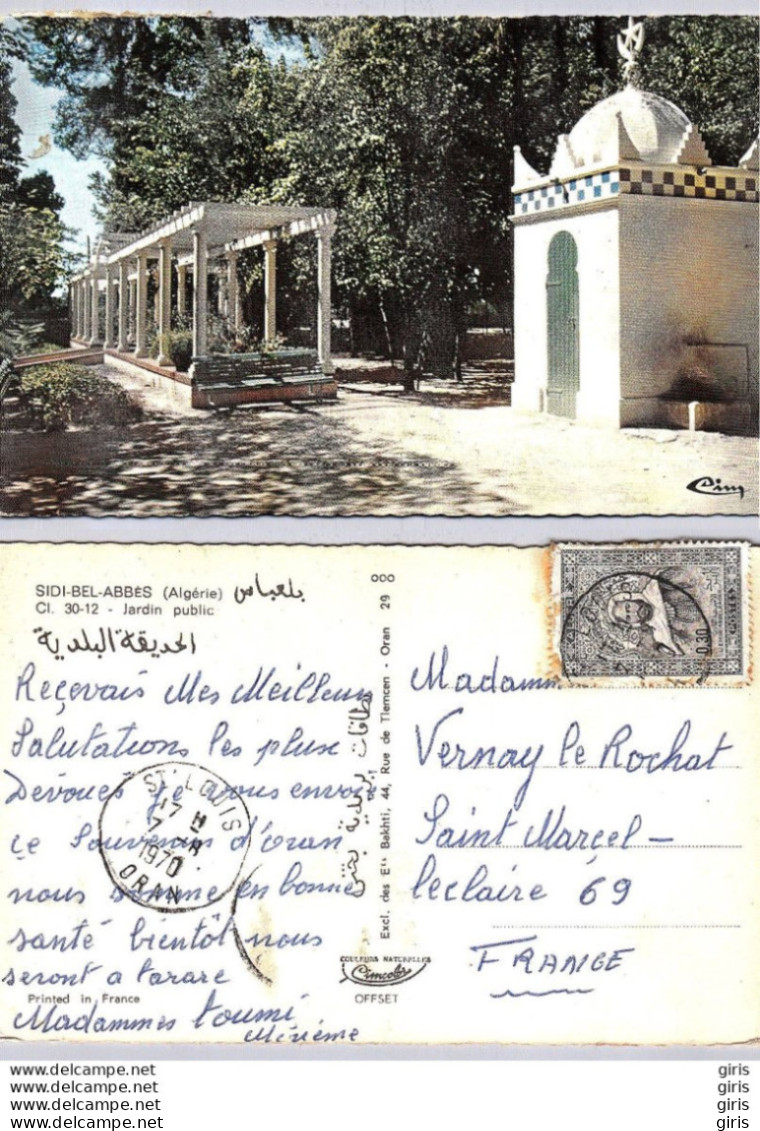 Cim
SIDI-BEL-ABBÈS (Algérie) بلعباس
Cl. 30-12 - Jardin public
الحديقة البلدية
Reçevais Mes Meilleurs
Salutations les plus
Dévoués je vous envoie
ce Souvenir d'oran
nous somme en bonne
santé bientôt nous
seront a tarare
Printed in France
Madammes toumi
Mérième
ST LOUIS
17 H
7
1970
ORAN
بطاقات بريدية بختي
Excl. des Ets Bakhti, 44, Rue de Tlemcen - Oran 29 000
COULEURS NATURELLES
Cimcolor
OFFSET
0,30
Madamme
Vernay le Rochat
Saint Marcel -
leclaire 69
FRANCE
www.delcampe.net
www.delcampe.net
www.delcampe.net
www.delcampe.net
giris
giris
giris
giris